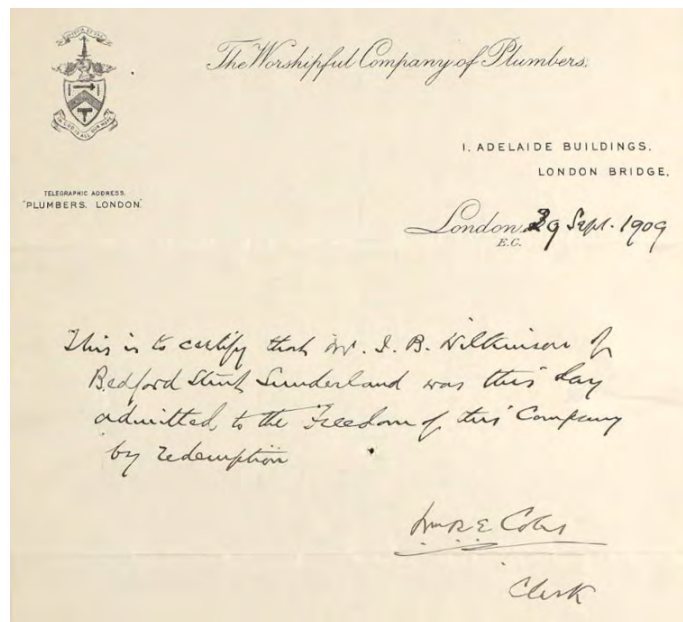 The Worshipful Company of Plumbers.
1. ADELAIDE BUILDINGS.
LONDON BRIDGE.
TELEGRAPHIC ADDRESS.
"PLUMBERS. LONDON."
London 29 Sept. 1909
E.C.
This is to certify that Mr. I. B. Wilkinson of
Bedford Street Sunderland was this day
admitted to the Freedom of this Company
by redemption
Wm R E Coles
Clerk